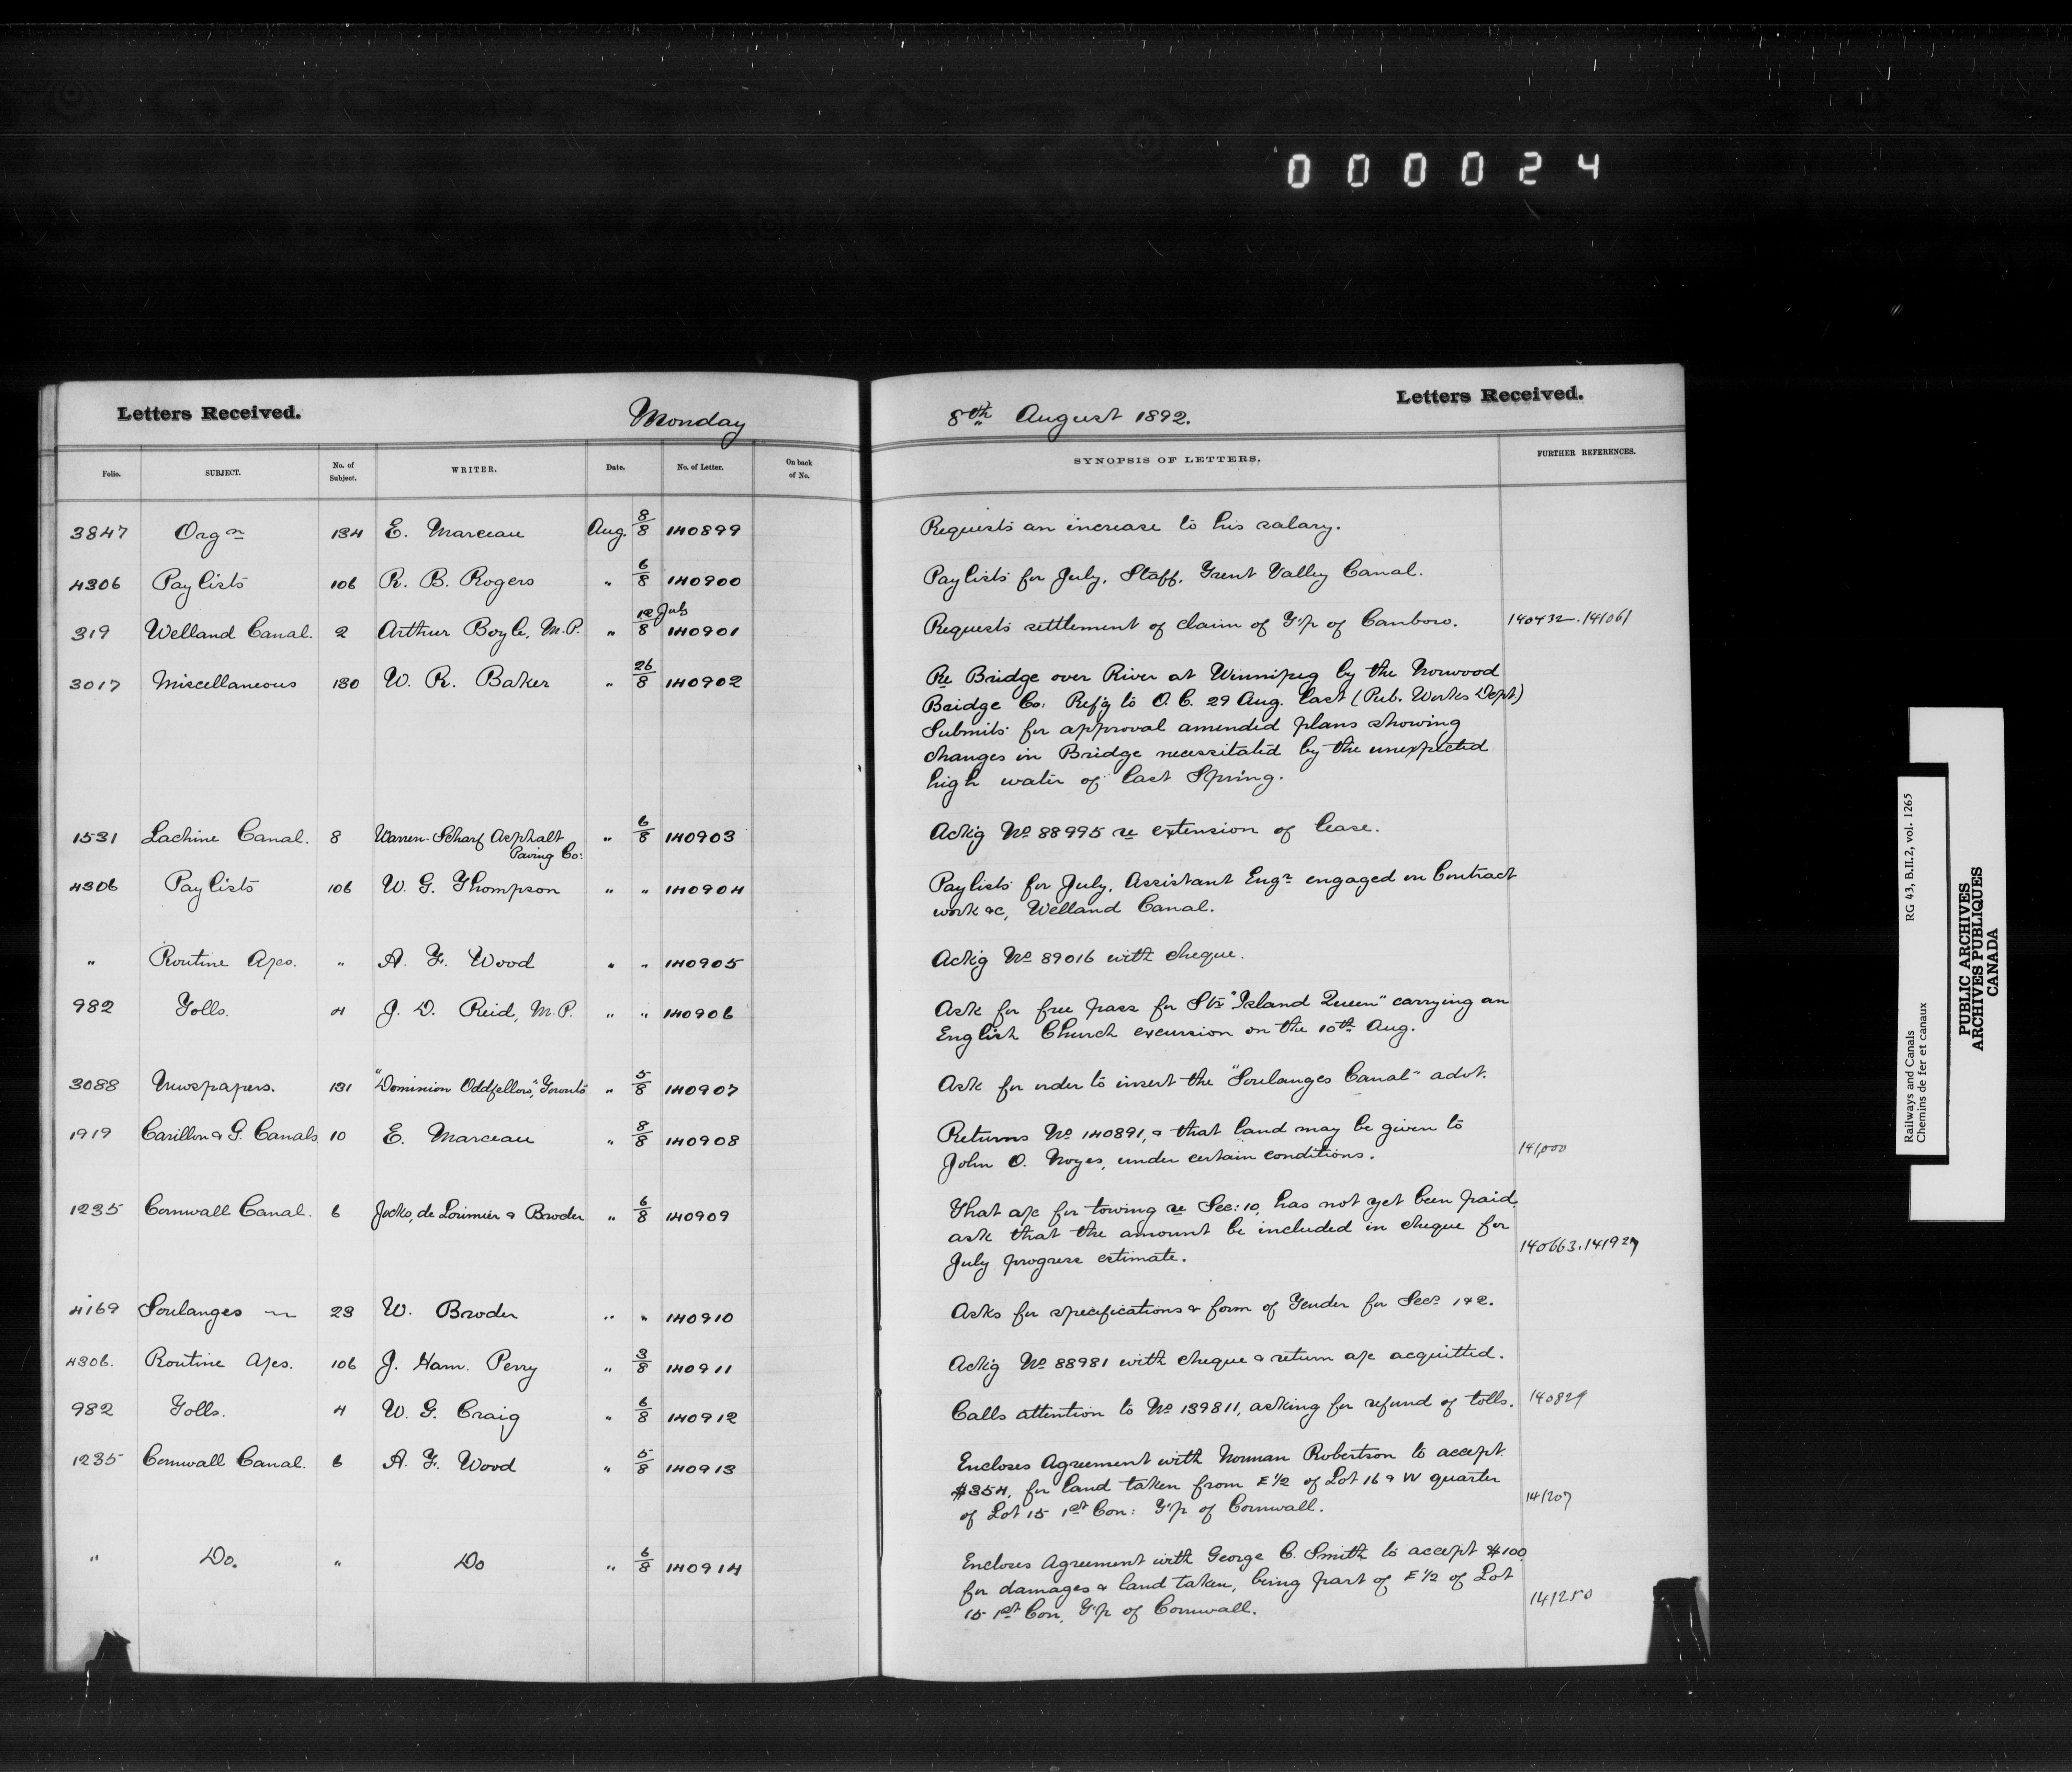 000024
Letters Received. Monday 8th August 1892. Letters Received.
Folio. SUBJECT. No. of Subject. WRITER. Date. No. of Letter. On back of No. SYNOPSIS OF LETTERS. FURTHER REFERENCES.
3847 Orgn 134 E. Marceau Aug. 8/8 140899 Requests an increase to his salary.
4306 Paylists 106 R. B. Rogers " 6/8 140900 Paylists for July, Staff, Trent Valley Canal.
319 Welland Canal. 2 Arthur Boyle, M.P. " 12/8 July 140901 Requests settlement of claim of T'p of Canboro. 140432. 141061
3017 Miscellaneous 130 W. R. Baker " 26/8 140902 Re Bridge over River at Winnipeg by the Norwood
Bridge Co: Ref'g to O. C. 29 Aug. last (Pub. Works Dept)
Submits for approval amended plans showing
changes in Bridge necessitated by the unexpected
high water of last Spring.
1531 Lachine Canal. 8 Warren-Scharf Asphalt Paving Co: " 6/8 140903 Ackg No 88995 re extension of lease.
4306 Paylists 106 W. G. Thompson " " 140904 Paylists for July, Assistant Engr engaged on Contract
work &c, Welland Canal.
" Routine A/cs. " A. F. Wood " " 140905 Ackg No 89016 with cheque.
982 Tolls. 4 J. D. Reid, M.P. " " 140906 Ask for free pass for Str "Island Queen" carrying an
English Church excursion on the 10th Aug.
3088 Newspapers. 131 "Dominion Oddfellows," Toronto " 5/8 140907 Ask for order to insert the "Soulanges Canal" advt.
1919 Carillon & G. Canals 10 E. Marceau " 8/8 140908 Returns No 140891, & that land may be given to
John O. Noyes, under certain conditions. 141,000
1235 Cornwall Canal. 6 Jocks, de Lorimier & Broder " 6/8 140909 That a/c for towing re Sec: 10, has not yet been paid,
ask that the amount be included in cheque for
July progress estimate. 140663. 141927
4169 Soulanges 〃 23 W. Broder " " 140910 Asks for specifications & form of Tender for Secs 1 & 2.
4306. Routine A/cs. 106 J. Ham. Perry " 3/8 140911 Ackg No 88981 with cheque & return a/c acquitted.
982 Tolls. 4 W. G. Craig " 6/8 140912 Calls attention to No 139811, asking for refund of tolls. 140829
1235 Cornwall Canal. 6 A. F. Wood " 5/8 140913 Encloses Agreement with Norman Robertson to accept
$354, for land taken from E 1/2 of Lot 16 & W quarter
of Lot 15 1st Con: T'p of Cornwall. 141207
" Do. " Do " 6/8 140914 Encloses Agreement with George C. Smith to accept $100
for damages & land taken, being part of E 1/2 of Lot
15 1st Con, T'p of Cornwall. 141250
Railways and Canals RG 43, B.II.2, vol. 1265
Chemins de fer et canaux
PUBLIC ARCHIVES
ARCHIVES PUBLIQUES
CANADA